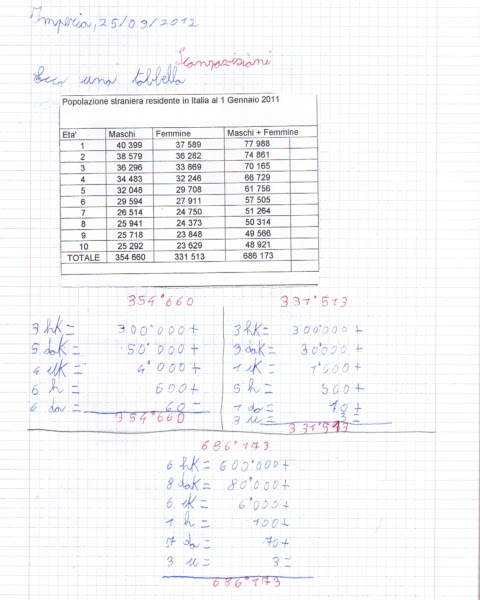 Imperia, 25/09/2012
Scomposizioni
Ecco una tabbella
Popolazione straniera residente in Italia al 1 Gennaio 2011
Eta' Maschi Femmine Maschi + Femmine
1 40 399 37 589 77 988
2 38 579 36 282 74 861
3 36 296 33 869 70 165
4 34 483 32 246 66 729
5 32 048 29 708 61 756
6 29 594 27 911 57 505
7 26 514 24 750 51 264
8 25 941 24 373 50 314
9 25 718 23 848 49 566
10 25 292 23 629 48 921
TOTALE 354 660 331 513 686 173
354°660
3 hK = 300°000+
5 daK = 50°000+
4 uK = 4°000+
6 h = 600+
6 da = 60=
354°660
331°513
3 hK = 300°000+
3 daK = 30°000+
1 uK = 1°000+
5 h = 500+
1 da = 10+
3 u = 3=
331°513
686°173
6 hK = 600°000+
8 daK = 80°000+
6 uK = 6°000+
1 h = 100+
7 da = 70+
3 u = 3=
686°173